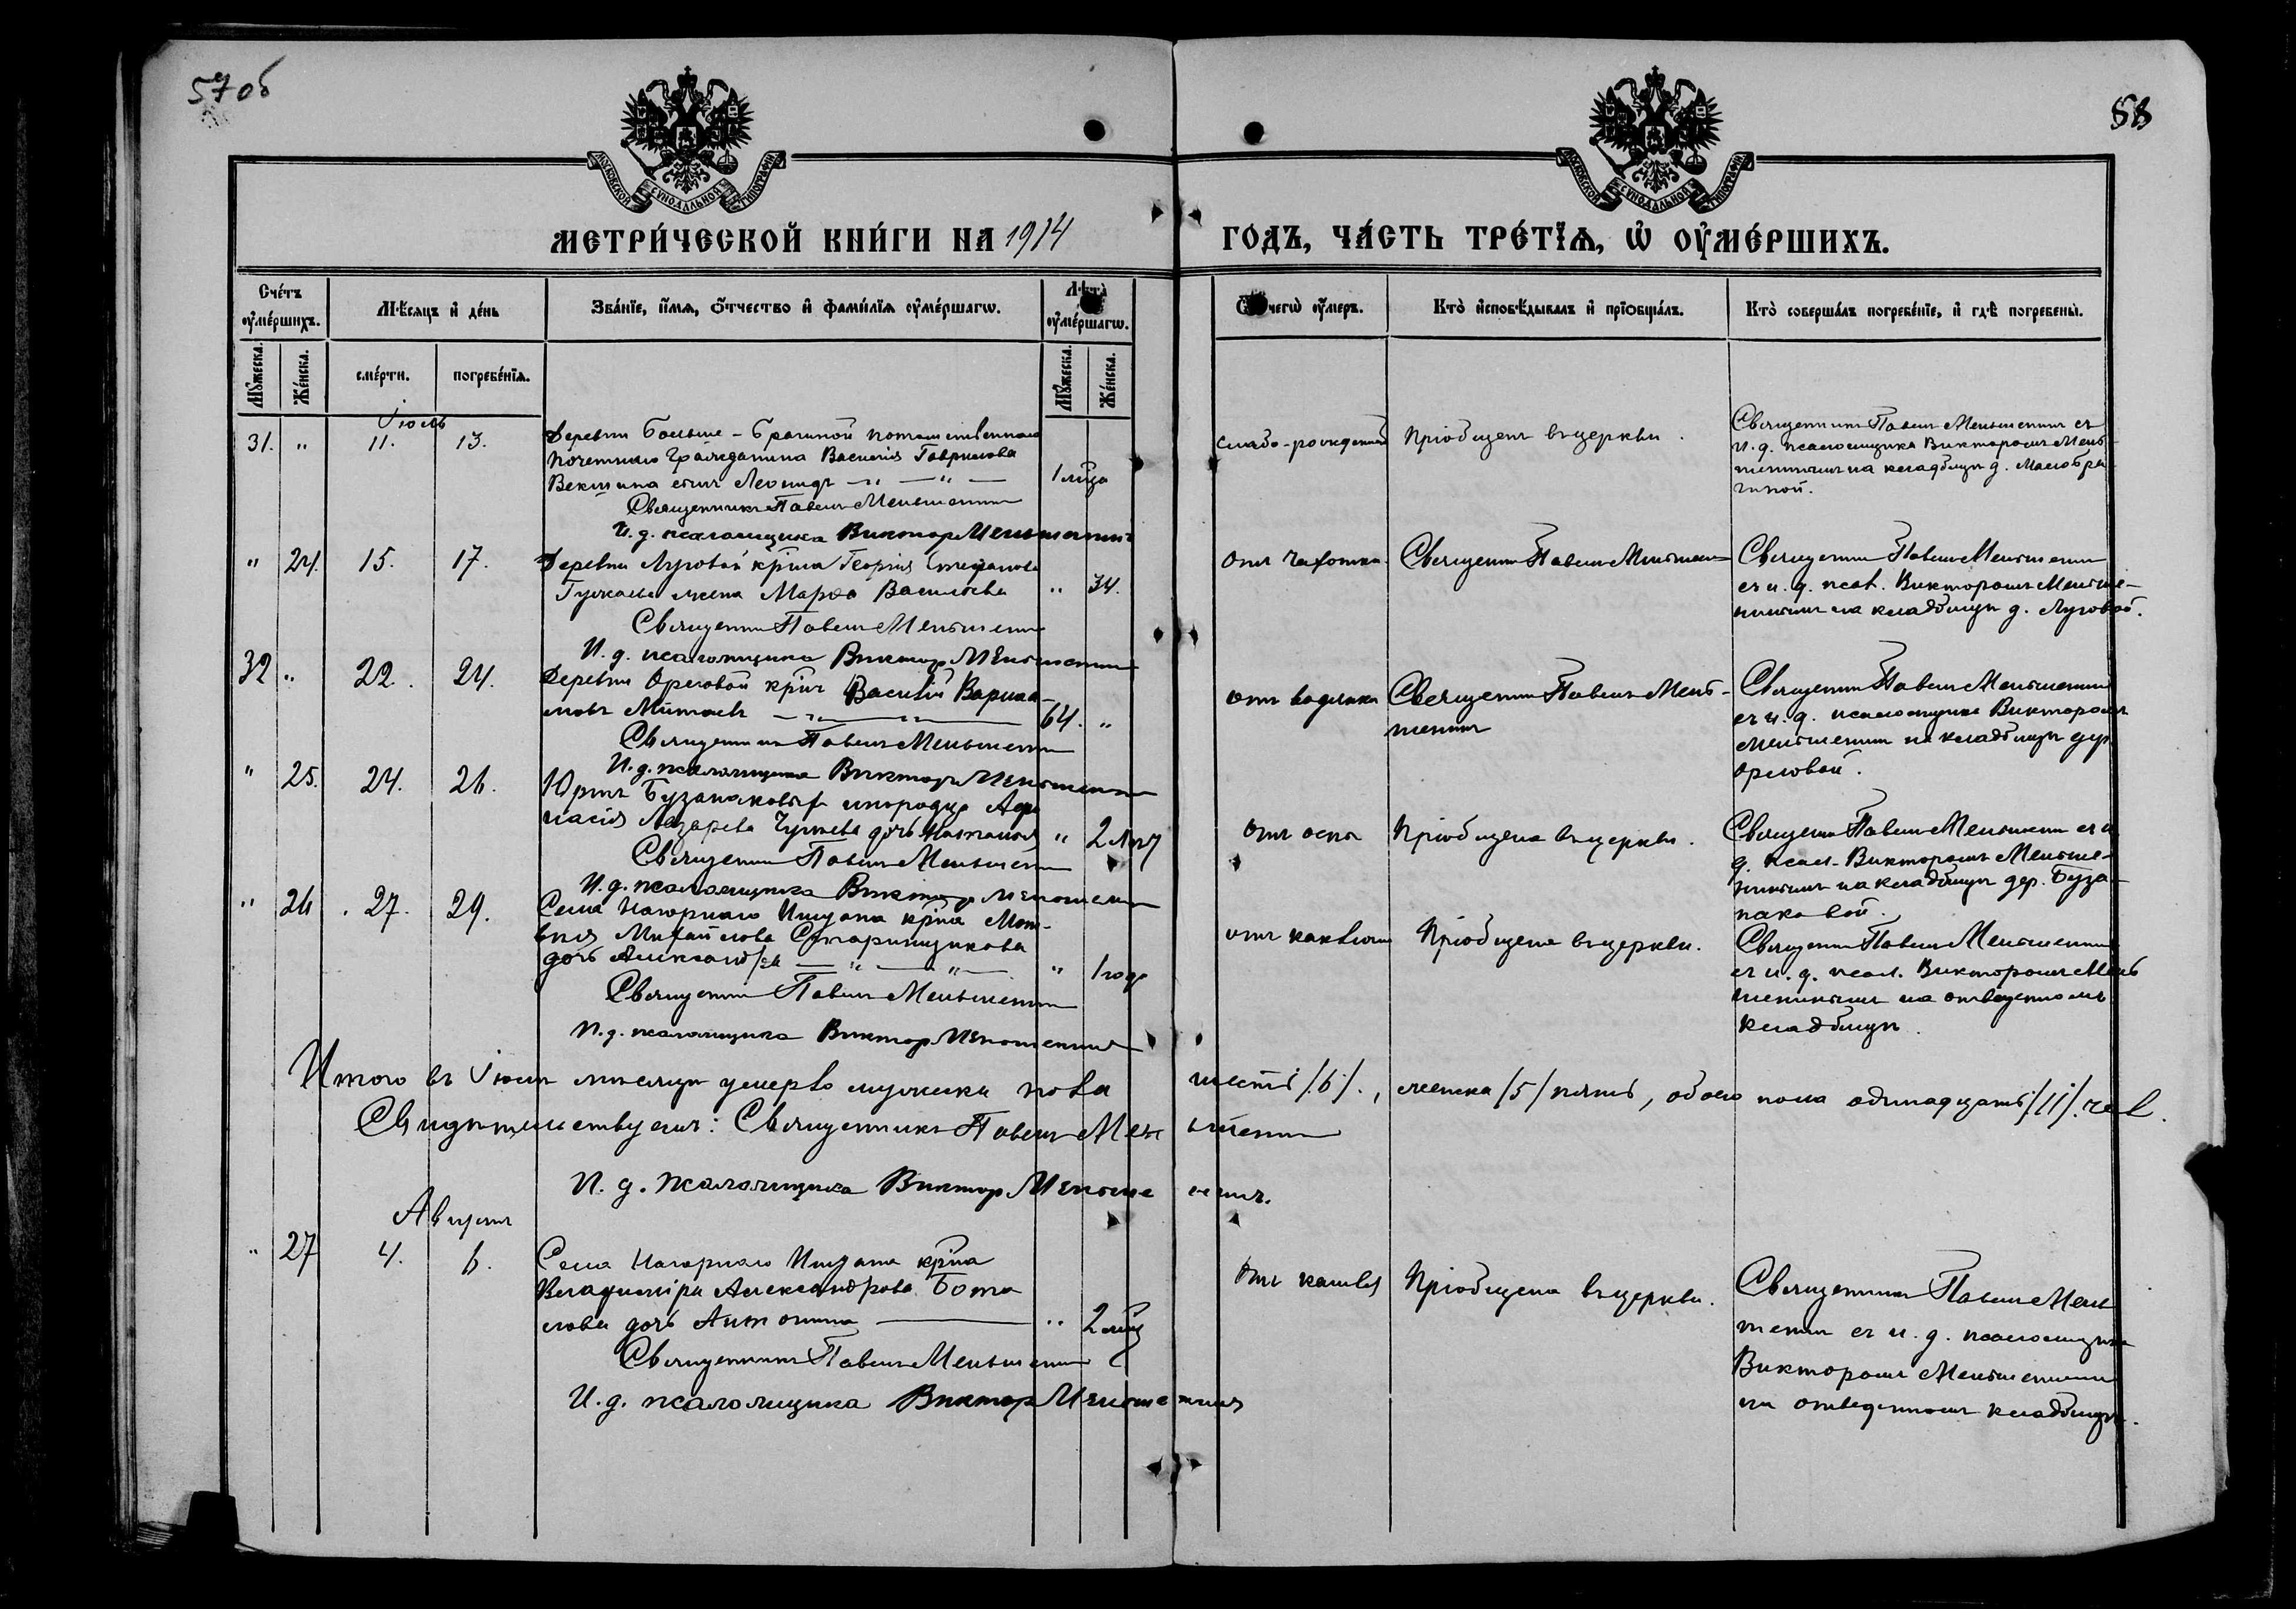 57об
58
МОСКОВСКОЙ СѴНОДАЛЬНОЙ ТИПОГРАФІИ
МОСКОВСКОЙ СѴНОДАЛЬНОЙ ТИПОГРАФІИ
МЕТРИ́ЧЕСКОЙ КНИ́ГИ НА 1914
ГОДЪ, ЧА́СТЬ ТРЕ́ТЇѦ, Ѡ҆ ОУ҆МЕ́РШИХЪ.
Сче́тъ оу҆ме́ршихъ.
Мѣ́сяцъ и҆ де́нь
Зва́нїе, и҆́мя, ѻ҆́тчество и҆ фами́лїя оу҆ме́ршагѡ.
Лѣта̀ оу҆ме́ршагѡ.
чегѡ̀ оу҆́меръ.
Кто̀ и҆сповѣ́дывалъ и҆ прїѡбща́лъ.
Кто̀ соверша́лъ погребе́нїе, и҆ гдѣ̀ погребены̀.
Мꙋ́жеска.
Же́нска.
сме́рти.
погребе́нїя.
Мꙋ́жеска.
Же́нска.
Іюль
31. " 11. 13.
Деревни Больше-Брагиной потомственнаго
почетнаго Гражданина Василія Гаврилова
сынъ Леонидъ — " — " —
1 мѣ́ца
Священникъ Павелъ Меньшенинъ
И. д. псаломщика Викторъ Меньшенинъ
слабо-рожденный
Пріобщенъ въ церкви.
Священникъ Павелъ Меньшенинъ съ
и. д. псаломщика Викторомъ Мень-
шенинымъ на кладбищѣ д. Малобра-
гиной.
" 24. 15. 17.
Деревни Луговой кр̃на Георгія Стефанова
жена Марѳа Васильева " 34.
Священникъ Павелъ Меньшенинъ
И. д. псаломщика Викторъ Меньшенинъ
Отъ чахотки.
Священникъ Павелъ Меньшенинъ
Священникъ Павелъ Меньшенинъ
съ и. д. псал. Викторомъ Меньше-
нинымъ на кладбищѣ д. Луговой.
32 " 22. 24.
Деревни Ореховой кр̃нъ Василій
64. "
Священникъ Павелъ Меньшенинъ
И. д. псаломщика Викторъ Меньшенинъ
отъ водянки
Священникъ Павелъ Мень-
шенинъ
Священникъ Павелъ Меньшенинъ
съ и. д. псаломщика Викторомъ
Меньшенинымъ на кладбищѣ дер.
" 25. 24. 26.
Юртъ Бузанаковыхъ инородца Аѳа-
насія Лазарева дочь "
Священникъ Павелъ Меньшенинъ
И. д. псаломщика Викторъ Меньшенинъ
отъ оспы
Пріобщена въ церкви.
Священникъ Павелъ Меньшенинъ съ и.
д. псал. Викторомъ Меньше-
нинымъ на кладбищѣ дер. Буза-
наковой.
" 26 27. 29.
Села Нагорнаго Иштана кр̃на Мат-
вѣя Михайлова Старинщикова
дочь Александра — " — " — " 1 годъ
Священникъ Павелъ Меньшенинъ
И. д. псаломщика Викторъ Меньшенинъ
отъ коклюша
Пріобщена въ церкви.
Священникъ Павелъ Меньшенинъ
съ и. д. псал. Викторомъ Мень-
шенинымъ на отведенномъ
кладбищѣ.
Итого въ Іюлѣ мѣсяцѣ умерло мужска пола шесть /6/., женска /5/ пять, обоего пола одинадцать /11/. чел.
Свидѣтельствуемъ: Священникъ Павелъ Меньшенинъ
И. д. псаломщика Викторъ Меньшенинъ.
Августъ
" 27 4. 6.
Села Нагорнаго Иштана кр̃на
Владиміра Александрова
дочь Антонина — "
Священникъ Павелъ Меньшенинъ
И. д. псаломщика Викторъ Меньшенинъ
Отъ кашля
Пріобщена въ церкви.
Священникъ Павелъ Мень-
шенинъ съ и. д. псаломщика
Викторомъ Меньшенинымъ
на отведенномъ кладбищѣ.